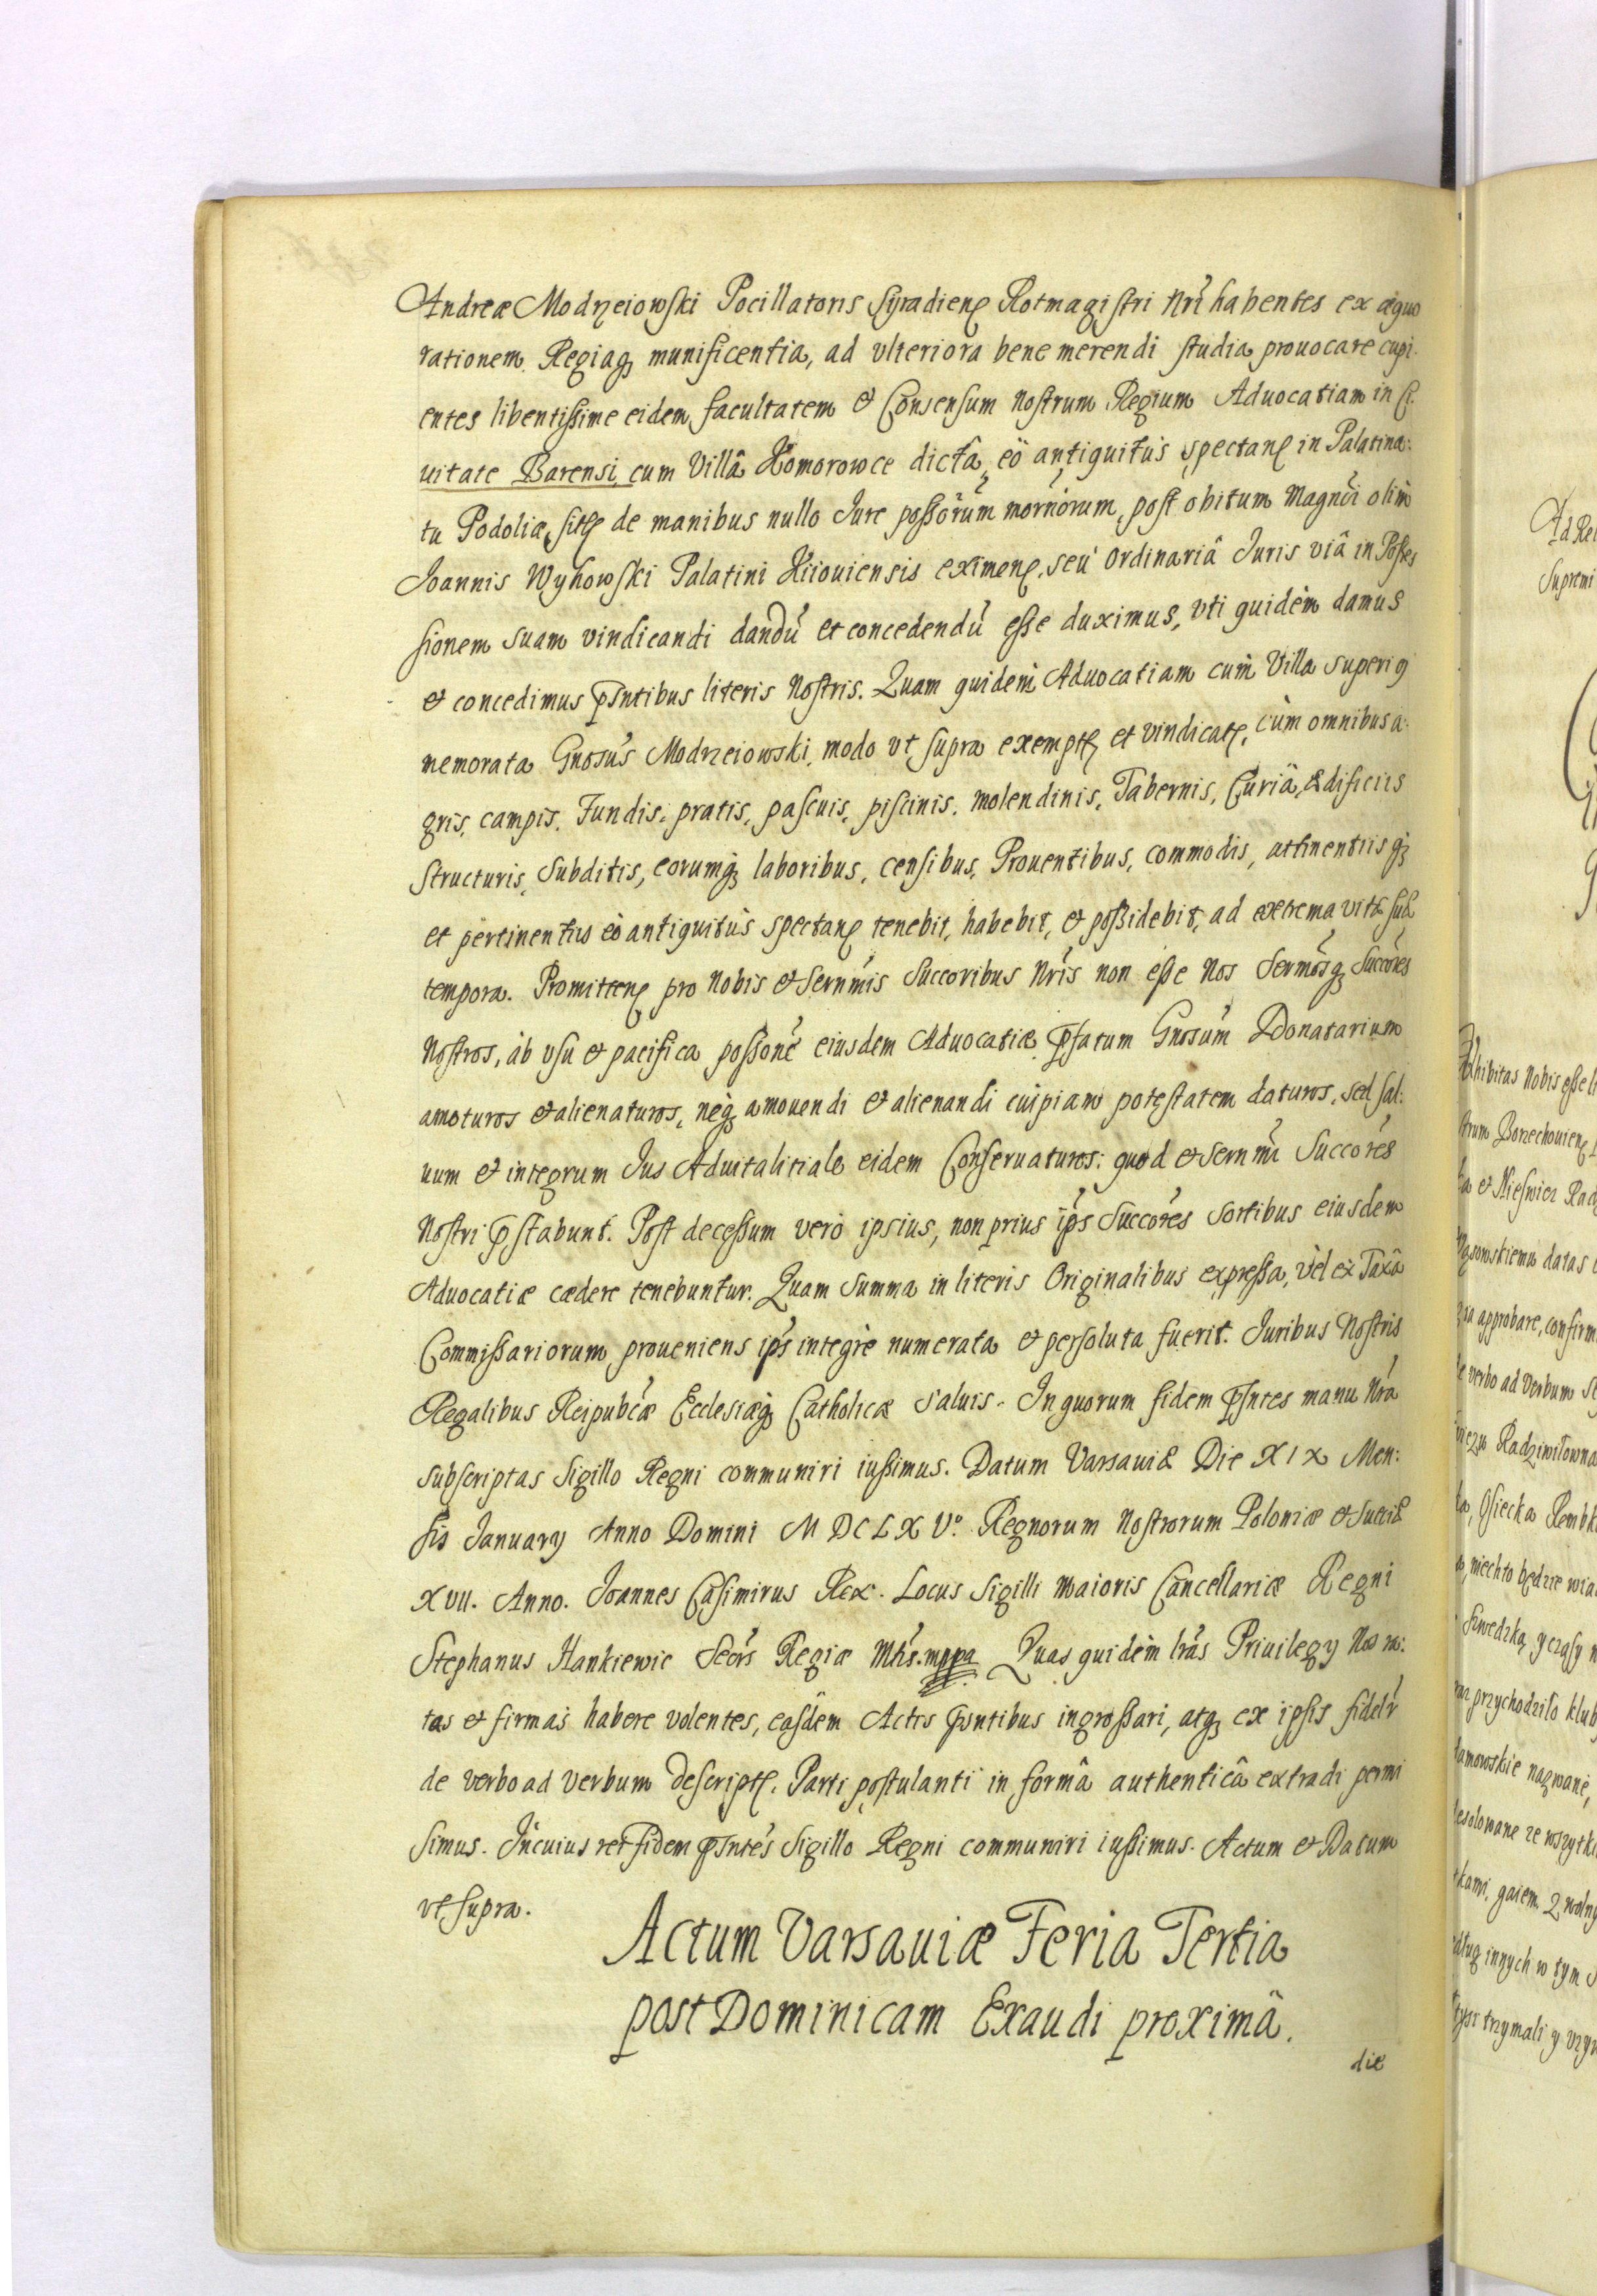 Andreæ Modrzeiowski Pocillatoris Syradien Rotmagistri Nri habentes ex æquo
rationem Regiaq munificentia, ad vlteriora bene merendi studia prouocare cupi
entes libentissime eidem facultatem et Consensum Nostrum Regium Aduocatiam in Ci
uitate Barensi cum Villâ Komorowce dictâ eò antiquitùs spectan in Palatina:
tu Podoliæ sitæ de manibus nullo Jure possorum mornorum, post obitum Magnci olim
Joannis Wyhowski Palatini Kiiouiensis eximen, seu Ordinariâ Juris viâ in Posses
sionem suam vindicandi dandū et concedendū esse duximus, vti quidem damus
et concedimus pnsntibus literis Nostris. Quam quidem Aduocatiam cum Villa superiq
nemorata Gnosus Modrzeiowski, modo vt supra exempt et vindicat, cum omnibus a:
gris, campis, Fundis, pratis, pascuis, piscinis, molendinis, Tabernis, Curiâ, Ædificiis
structuris, Subditis, eorumq laboribus, censibus, Prouentibus, commodis, attinentiisq
et pertinentiis eò antiquitùs spectan tenebit, habebit, et possidebit, ad extrema vitæ suæ
tempora. Promitten pro Nobis et Sernmis Succoribus Nris non esse Nos Sermosq Succores
Nostros, ab vsu et pacifica possone eiusdem Aduocatiæ pfatum Gnosum Donatarium
amoturos et alienaturos, neq amouendi et alienandi cuipiam potestatem daturos, sed sal:
uum et integrum Jus Aduitalitiale eidem Conseruaturos: quod et sernmi Succores
Nostri pstabunt. Post decessum verò ipsius, non prius ips Succores sortibus eiusdem
Aduocatiæ cædere tenebuntur. Quam summa in literis Originalibus expressa, vel ex Taxâ
Commissariorum proueniens ips integrè numerata et persoluta fuerit. Juribus Nostris
Regalibus Reipubcæ Ecclesiæq Catholicæ saluis. In quorum fidem psntes manu Nra
subscriptas Sigillo Regni communiri iussimus. Datum Varsauiæ Die XIX Men:
sis January Anno Domini MDCLXVº. Regnorum Nostrorum Poloniæ et Sueciæ
XVII. Anno. Joannes Casimirus Rex. Locus Sigilli Maioris Cancellariæ Regni
Stephanus Hankiewic Secrs Regiæ Mtis. mppa Quas quidem lras Priuilegy Nos ra:
tas et firmas habere volentes, easdem Actis psntibus ingrossari, atq ex ipsis fidelr
de verbo ad verbum descript. Parti postulanti in formâ authenticâ extradi permi
simus. In cuius rei fidem psntes Sigillo Regni communiri iussimus. Actum et Datum
vt supra.
Actum Varsauiæ Feria Tertia
post Dominicam Exaudi proximâ.
die
Ad Rel
Supremi
hibitas Nobis esse li
trum Borzechouien
a et Nieswiez Rad
ia approbare, confirm
e verbo ad Verbum
Radziwiłowna
Osiecka Rembk
niechto będzie wia
Szwedzką, y czasy
przychodziło klub
amowskie nazwane,
desolowane ze wszytki
kami, gaiem. Z wolny
ług innych w tym
trzymali y vzyw